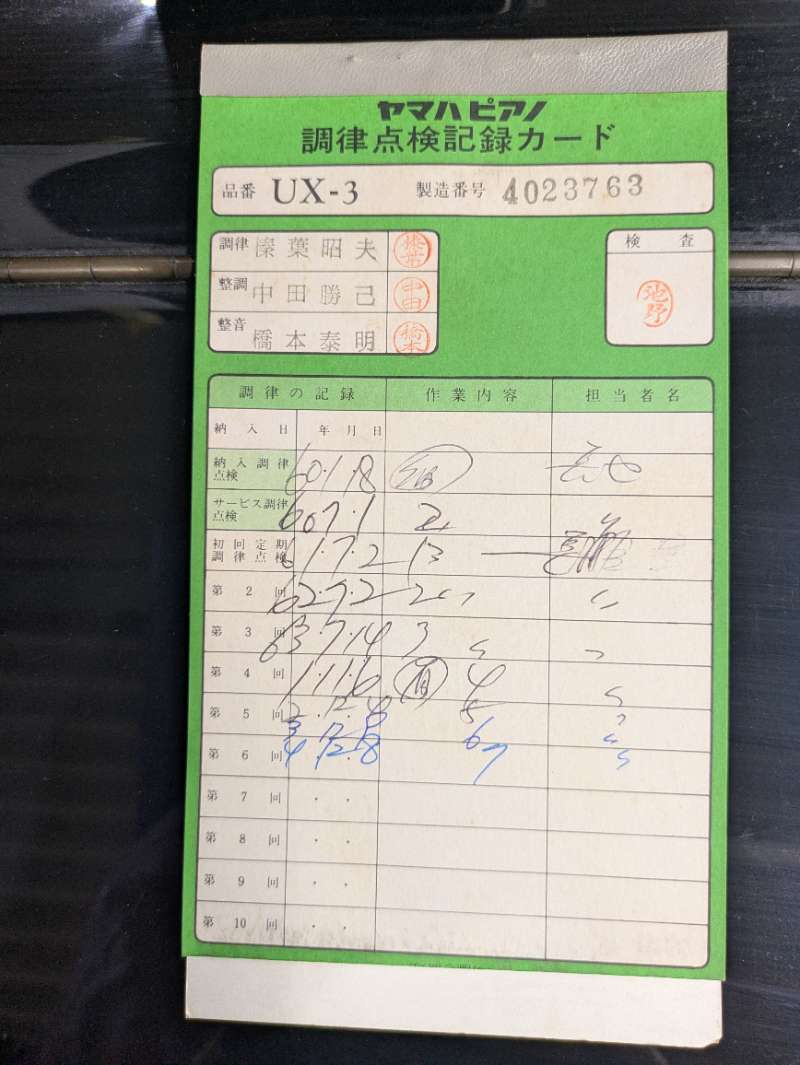 ヤマハピアノ
調律点検記録カード
品番 UX-3 製造番号 4023763
調律 榛葉昭夫 榛葉
整調 中田勝己 中田
整音 橋本泰明 橋本
検査
池野
調律の記録 作業内容 担当者名
納入日 年 月 日
納入調律点検 60.1.8
サービス調律点検 60.7.1 2
初回定期調律点検 61.7.2 13
第2回 62.7.2 2 〃
第3回 63.7.14 3 〃
第4回 1.1.16 4 〃
第5回 2.12.4 5 〃
3.12.8 6 〃
第6回 4.12.8 7 〃
第7回 . .
第8回 . .
第9回 . .
第10回 . .